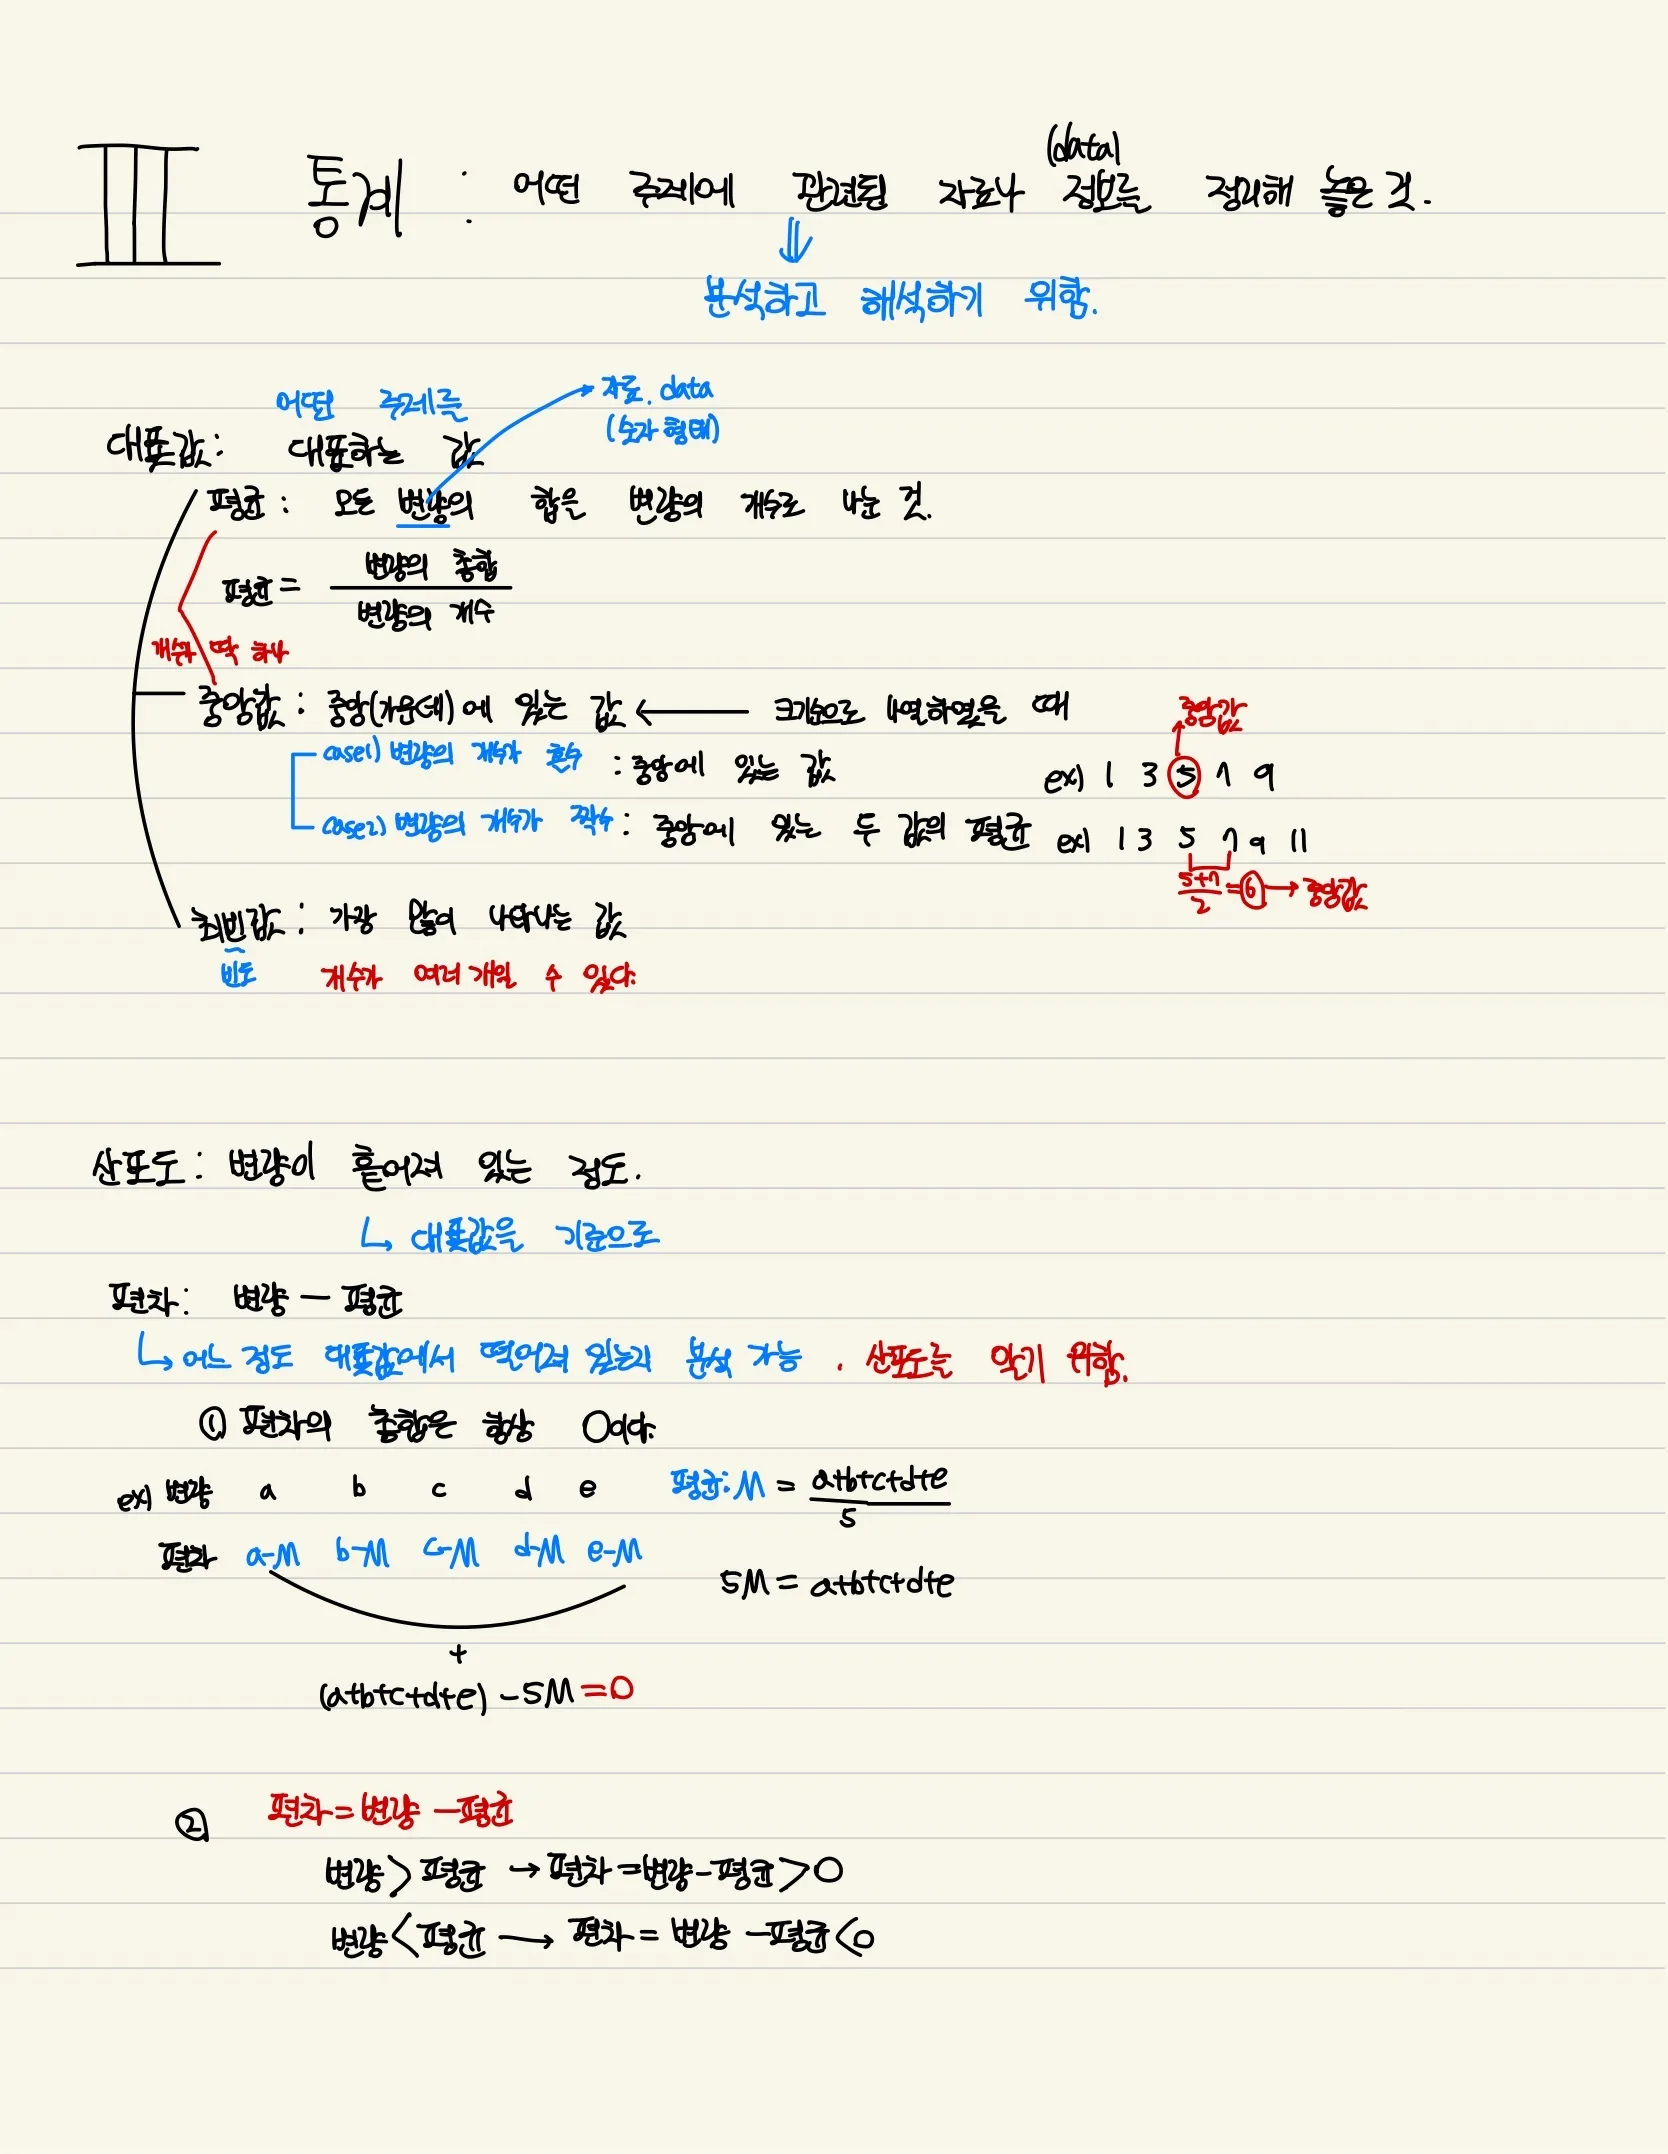 (data)
III 통계 : 어떤 주제에 관련된 자료나 정보를 정리해 놓은 것.
분석하고 해석하기 위함.
어떤 주제를
자료. data
(숫자 형태)
대푯값: 대표하는 값
평균: 모든 변량의 합을 변량의 개수로 나눈 것.
평균 = 변량의 총합
변량의 개수
개수가 딱 하나
중앙값: 중앙(가운데)에 있는 값 ← 크기순으로 나열하였을 때
중앙값
case1) 변량의 개수가 홀수 : 중앙에 있는 값 ex) 1 3 5 7 9
case2) 변량의 개수가 짝수 : 중앙에 있는 두 값의 평균 ex) 1 3 5 7 9 11
5+7/2 = 6 → 중앙값
최빈값: 가장 많이 나타나는 값
빈도 개수가 여러 개일 수 있다.
산포도: 변량이 흩어져 있는 정도.
↳ 대푯값을 기준으로
편차: 변량 - 평균
↳ 어느 정도 대푯값에서 떨어져 있는지 분석 가능. 산포도를 알기 위함.
① 편차의 총합은 항상 0이다.
ex) 변량 a b c d e 평균: M = a+b+c+d+e/5
편차 a-M b-M c-M d-M e-M
5M = a+b+c+d+e
+
(a+b+c+d+e) - 5M = 0
② 편차 = 변량 - 평균
변량 > 평균 → 편차 = 변량 - 평균 > 0
변량 < 평균 → 편차 = 변량 - 평균 < 0